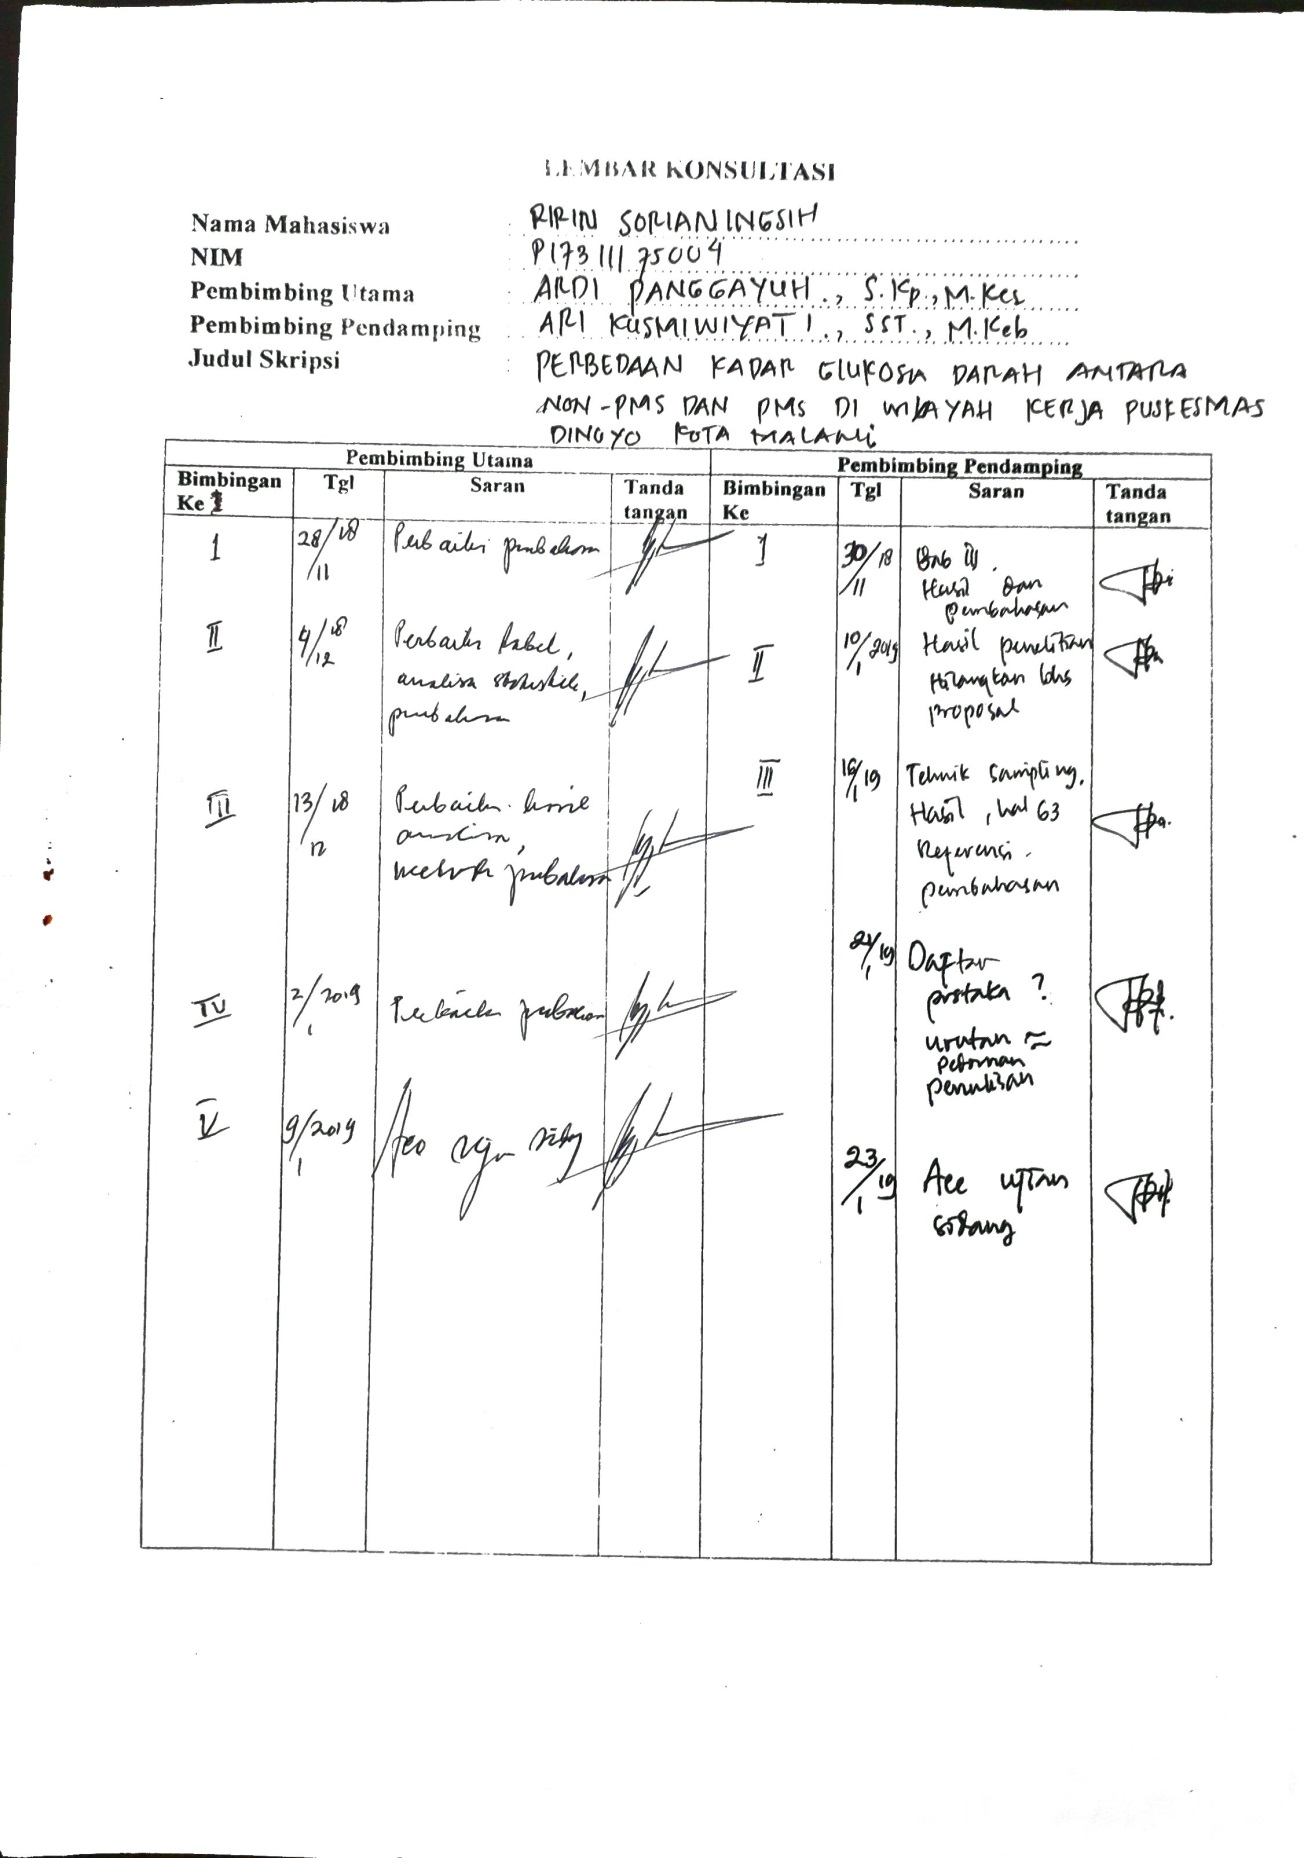 LEMBAR KONSULTASI
Nama Mahasiswa : RIRIN SORIANINGSIH
NIM : P17311175004
Pembimbing Utama : ARDI PANGGAYUH., S.Kp., M.Kes
Pembimbing Pendamping : ARI KUSMIWIYATI., SST., M.Keb
Judul Skripsi : PERBEDAAN KADAR GLUKOSA DARAH ANTARA
NON-PMS DAN PMS DI WILAYAH KERJA PUSKESMAS
DINOYO KOTA MALANG
Pembimbing Utama Pembimbing Pendamping
Bimbingan Ke Tgl Saran Tanda tangan Bimbingan Ke Tgl Saran Tanda tangan
I 28/11 18 Perbaiki pembahasan
I 30/11 18 Bab
Hasil dan
pembahasan
II 4/12 18 Perbaiki tabel,
analisa statistik,
pembahasan
II 10/1 2019 Hasil penelitian
Hilangkan
proposal
III 13/12 18 Perbaiki hasil
analisa,
pembahasan
III 16/1 19 Teknik sampling,
Hasil, hal 63
Referensi
pembahasan
IV 2/1 2019 Perbaiki pembahasan
21/1 19 Daftar
pustaka ?
urutan ≈
pedoman
penulisan
V 9/1 2019 Acc ujian sidang
23/1 19 Acc ujian
sidang